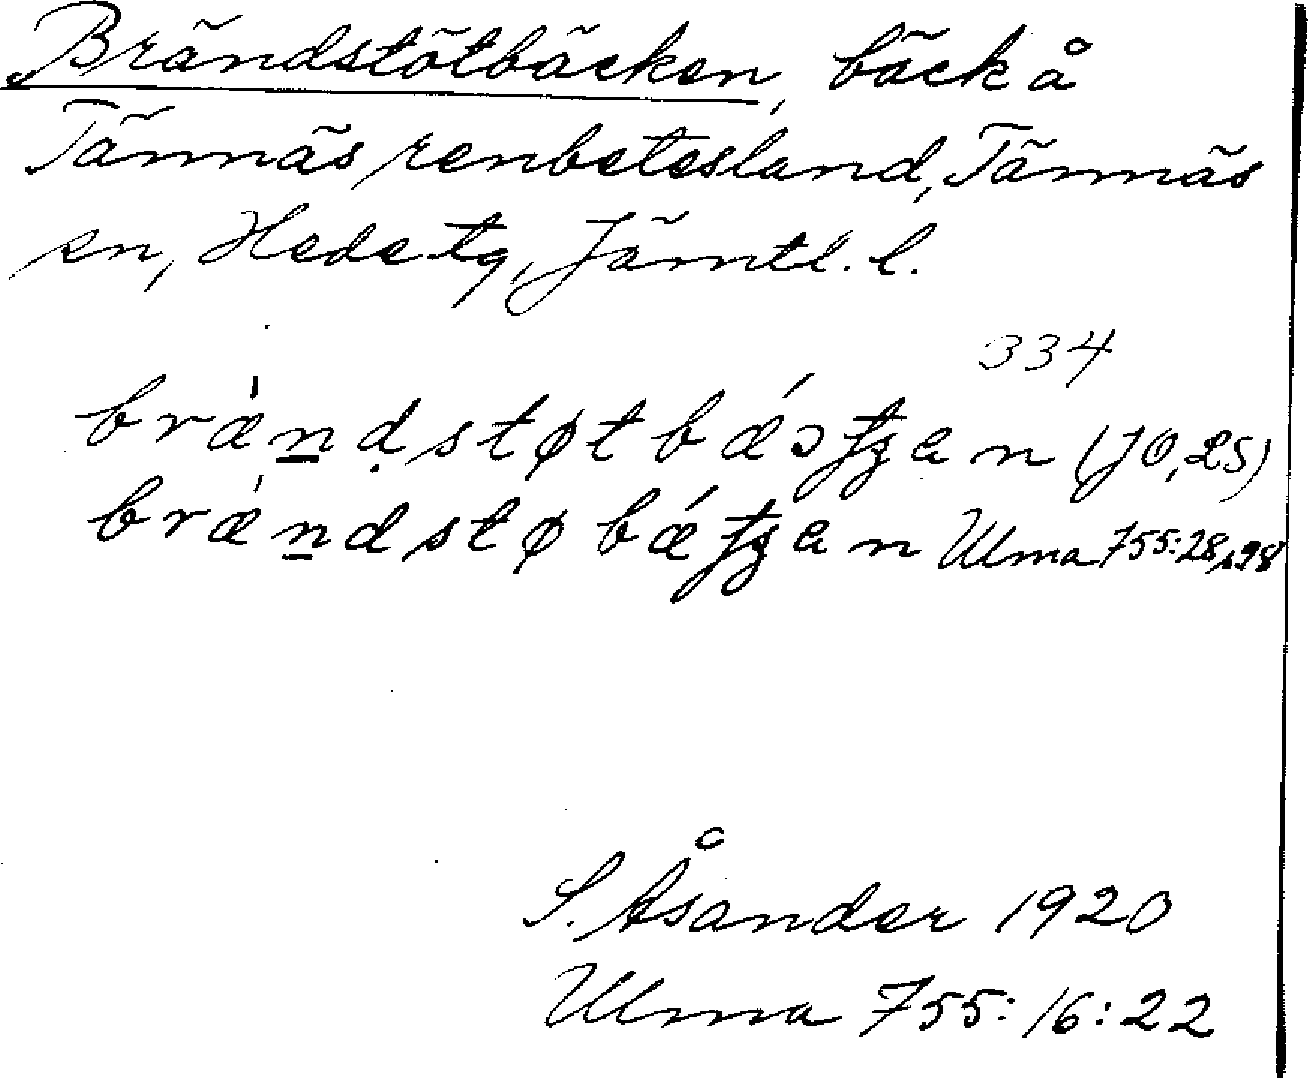 Brändstötbäcken, bäck å
Tännäs renbetesland, Tännäs
sn, Hede tg, Jämtl. l.
334
bræ̀n̲ḍstøtbǽɔʈʒan (JO, 25)
bræ̀n̲dstøbǽʈʒan Ulma 755:28, s. 98
S. Åsander 1920
Ulma 755:16:22